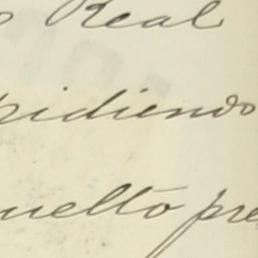 o Real
pidiendo
uelto pre